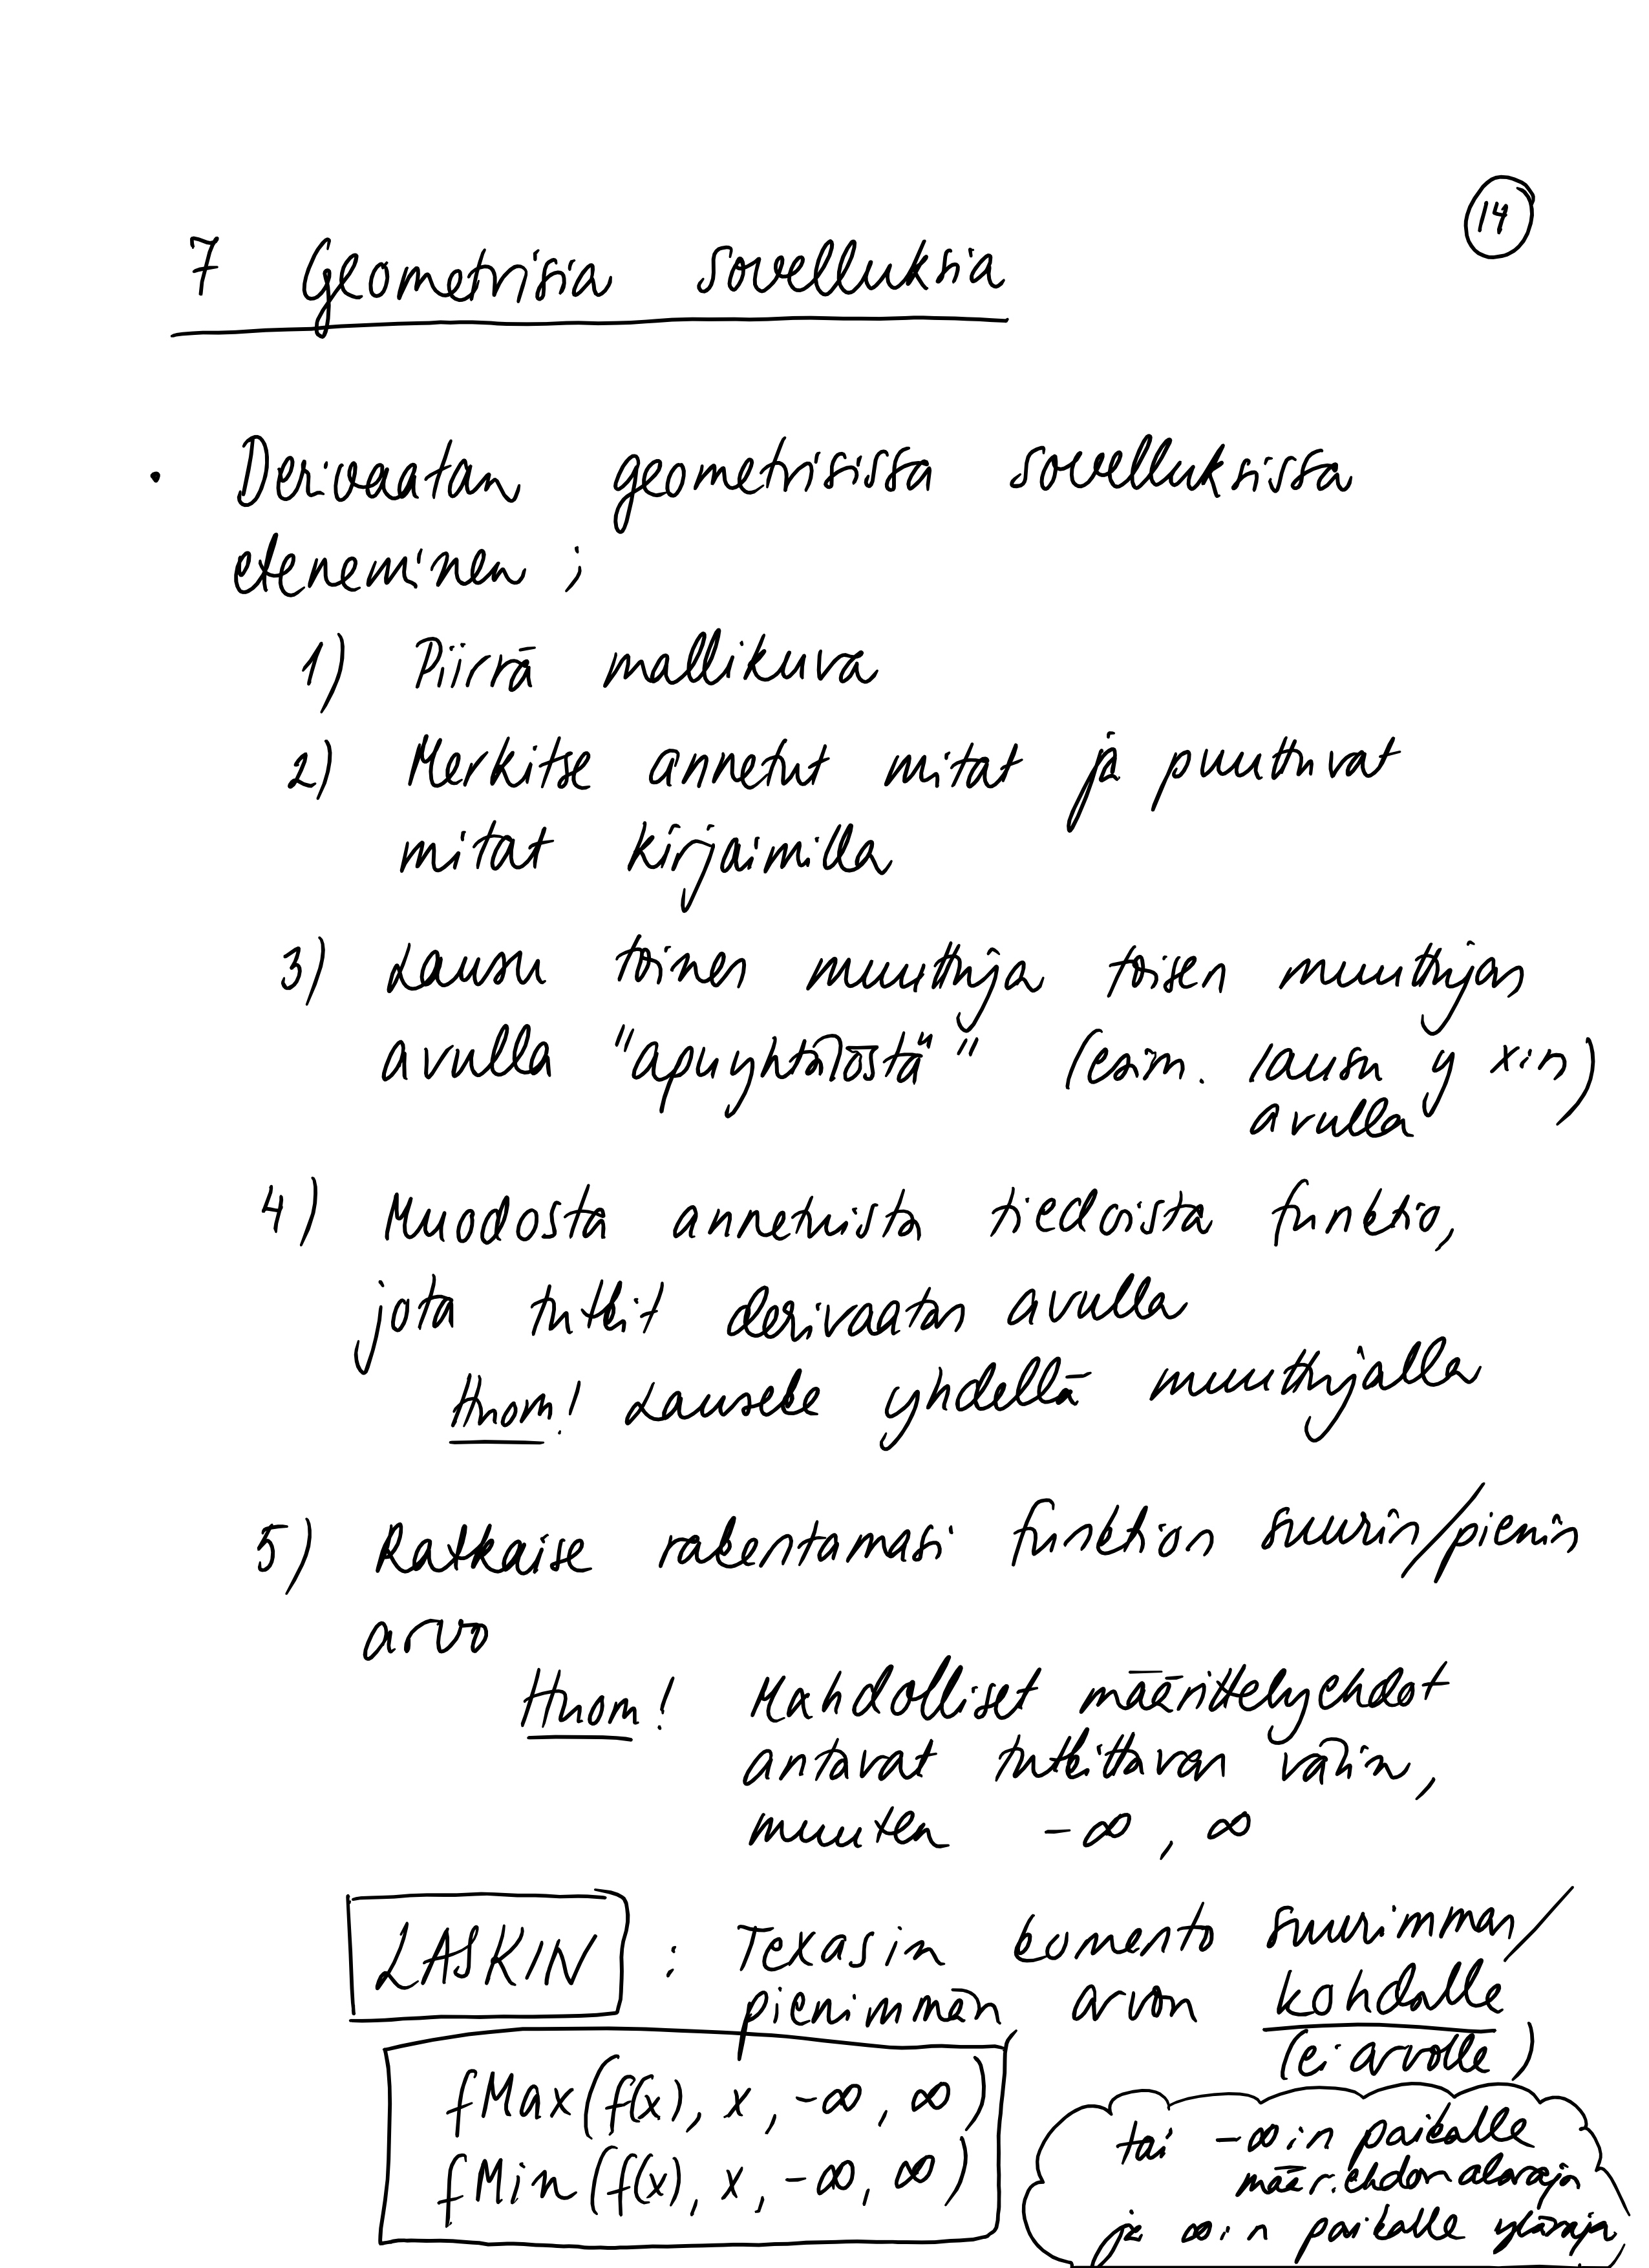 14
7 Geometrisia sovelluksia
• Derivaatan geometrisissa sovelluksissa
eteneminen ;
1) Piirrä mallikuva
2) Merkitse annetut mitat ja puuttuvat
mitat kirjaimilla
3) Lausu toinen muuttuja toisen muuttujan
avulla "apuyhtälöstä" (esim. lausu y x:in)
avulla
4) Muodosta annetuista tiedoista funktio,
jota tutkit derivaatan avulla
Huom! Lauseke yhdellä muuttujalla
5) Ratkaise rakentamasi funktion suurin/pienin
arvo
Huom! Mahdolliset määrittelyehdot
antavat tutkittavan välin,
muuten -∞, ∞
LASKIN : Texasin komento suurimman/
pienimmän arvon kohdalle
(ei arvolle)
fMax(f(x), x, -∞, ∞)
fMin(f(x), x, -∞, ∞)
tai -∞:in paikalle
määr.ehdon alaraja
ja ∞:n paikalle yläraja